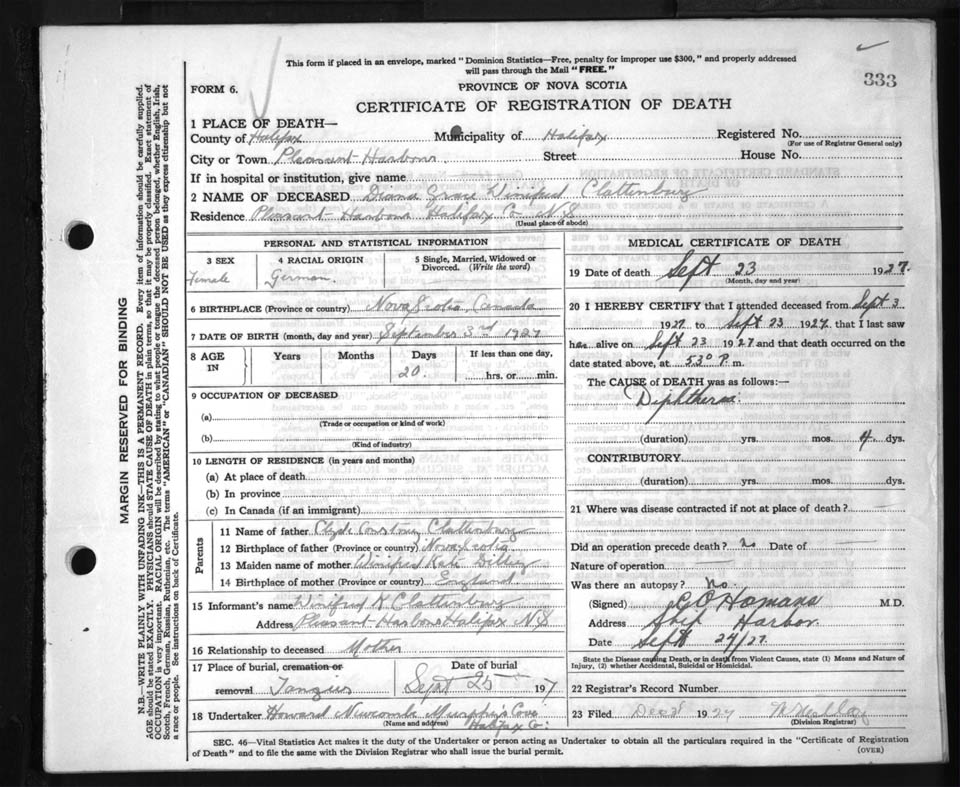 This form if placed in an envelope, marked "Dominion Statistics—Free, penalty for improper use $300," and properly addressed
will pass through the Mail "FREE."
333
FORM 6.
PROVINCE OF NOVA SCOTIA
CERTIFICATE OF REGISTRATION OF DEATH
1 PLACE OF DEATH—
County of Halifax Municipality of Halifax Registered No.
(For use of Registrar General only)
City or Town Pleasant Harbour Street House No.
If in hospital or institution, give name
2 NAME OF DECEASED Diana Grace Winifred Clattenburg
Residence Pleasant Harbour Halifax Co N.S
(Usual place of abode)
PERSONAL AND STATISTICAL INFORMATION
3 SEX 4 RACIAL ORIGIN 5 Single, Married, Widowed or
Divorced. (Write the word)
Female German
6 BIRTHPLACE (Province or country) Nova Scotia, Canada
7 DATE OF BIRTH (month, day and year) September 3rd 1927
8 AGE IN Years Months Days If less than one day,
20. hrs. or min.
9 OCCUPATION OF DECEASED
(a)
(Trade or occupation or kind of work)
(b)
(Kind of industry)
10 LENGTH OF RESIDENCE (in years and months)
(a) At place of death
(b) In province
(c) In Canada (if an immigrant)
Parents
11 Name of father Clyde Clattenburg
12 Birthplace of father (Province or country) Nova Scotia
13 Maiden name of mother Winifred Kate
14 Birthplace of mother (Province or country) England
15 Informant's name Winifred K Clattenburg
Address Pleasant Harbour Halifax N.S
16 Relationship to deceased Mother
17 Place of burial, cremation or Date of burial
removal Tangier Sept 25 1927
18 Undertaker Howard Newcombe Murphy's Cove
(Name and address) Halifax Co.
MEDICAL CERTIFICATE OF DEATH
19 Date of death Sept 23 1927.
(Month, day and year)
20 I HEREBY CERTIFY that I attended deceased from Sept 3
1927 to Sept 23 1927 that I last saw
her alive on Sept 23 1927 and that death occurred on the
date stated above, at 530 P. m.
The CAUSE of DEATH was as follows:—
Diphtheria
(duration) yrs. mos. 4 dys.
CONTRIBUTORY
(duration) yrs. mos. dys.
21 Where was disease contracted if not at place of death?
Did an operation precede death? no Date of
Nature of operation
Was there an autopsy? No.
(Signed) Homans M.D.
Address Ship Harbor.
Date Sept 24/27.
State the Disease causing Death, or in death from Violent Causes, state (1) Means and Nature of
Injury, (2) whether Accidental, Suicidal or Homicidal.
22 Registrar's Record Number
23 Filed 1927
(Division Registrar)
SEC. 46—Vital Statistics Act makes it the duty of the Undertaker or person acting as Undertaker to obtain all the particulars required in the "Certificate of Registration
of Death" and to file the same with the Division Registrar who shall issue the burial permit.
(OVER)
MARGIN RESERVED FOR BINDING
N.B.—WRITE PLAINLY WITH UNFADING INK—THIS IS A PERMANENT RECORD. Every item of information should be carefully supplied.
AGE should be stated EXACTLY. PHYSICIANS should STATE CAUSE OF DEATH in plain terms, so that it may be properly classified. Exact statement of
OCCUPATION is very important. RACIAL ORIGIN will be described by stating to what people or tongue the deceased person belonged, whether English, Irish,
Scotch, French, German, Russian, Ruthenian, etc. The terms "AMERICAN" or "CANADIAN" SHOULD NOT BE USED as they express citizenship but not
a race or people. See instructions on back of Certificate.